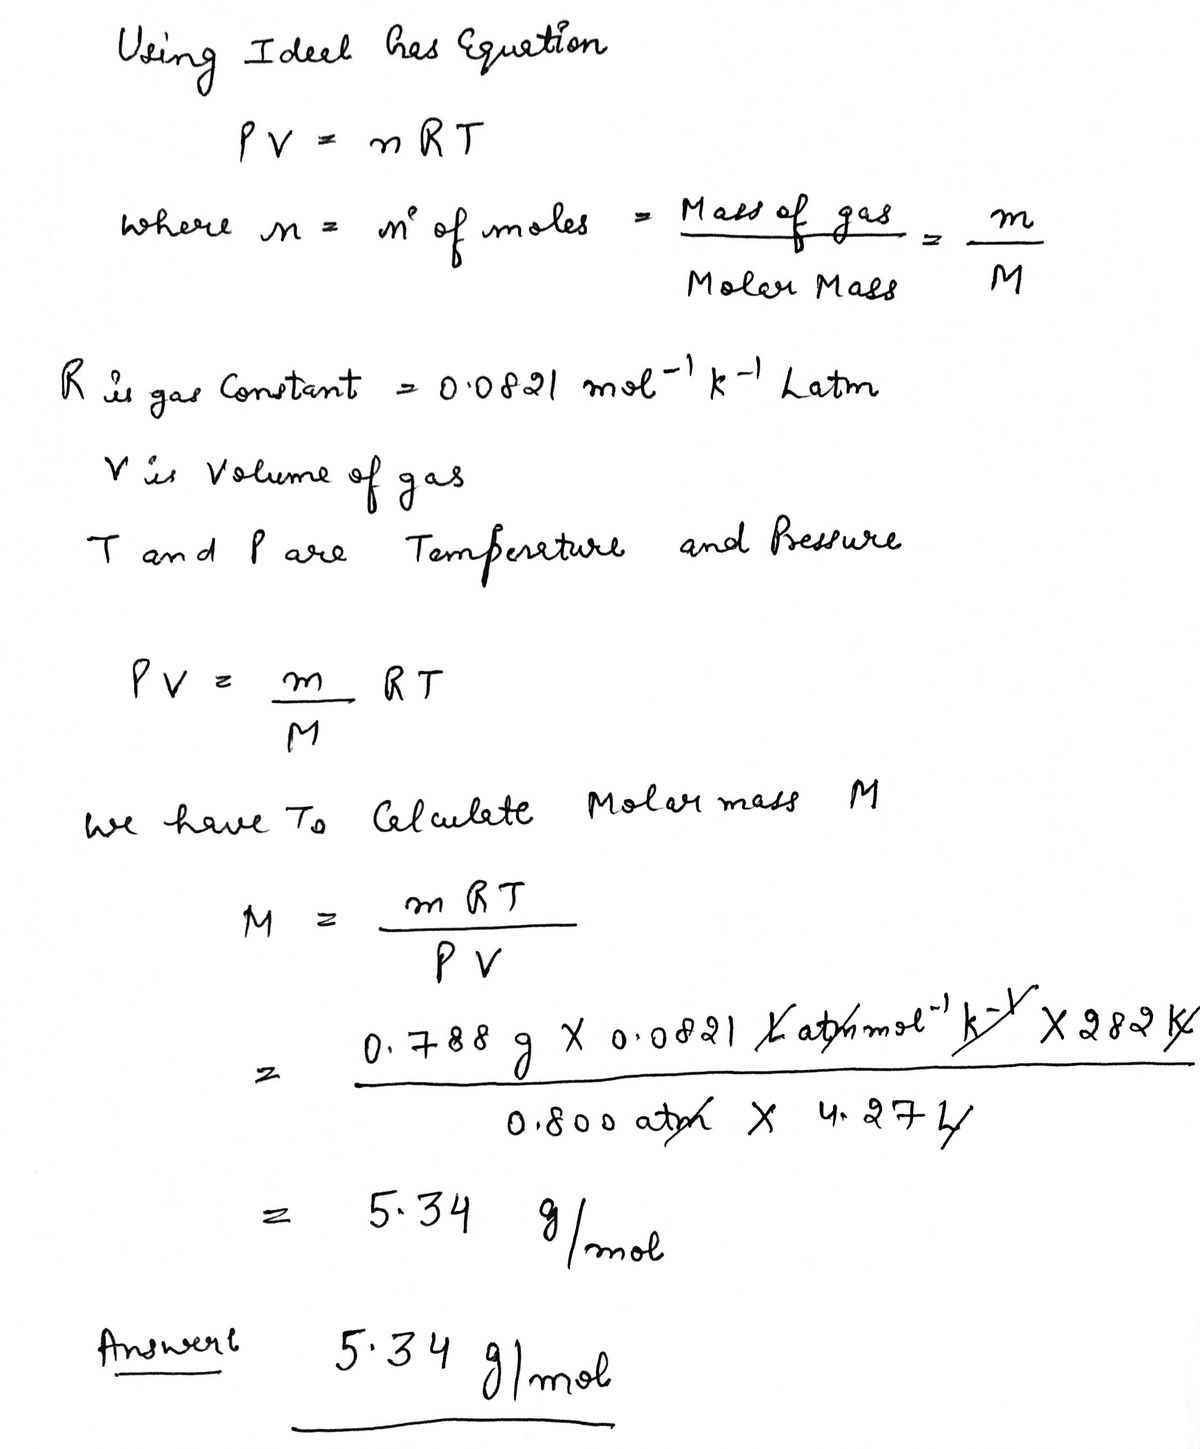 Using Ideal Gas Equation
PV = nRT
where n = nº of moles = Mass of gas / Molar Mass = m / M
R is gas Constant = 0.0821 mol⁻¹ k⁻¹ Latm
V is Volume of gas
T and P are Temperature and Pressure
PV = m / M RT
We have To Calculate Molar mass M
M = mRT / PV
= 0.788 g X 0.0821 L atm mol⁻¹ k⁻¹ X 282 K / 0.800 atm X 4.27 L
= 5.34 g/mol
Answer 5.34 g/mol